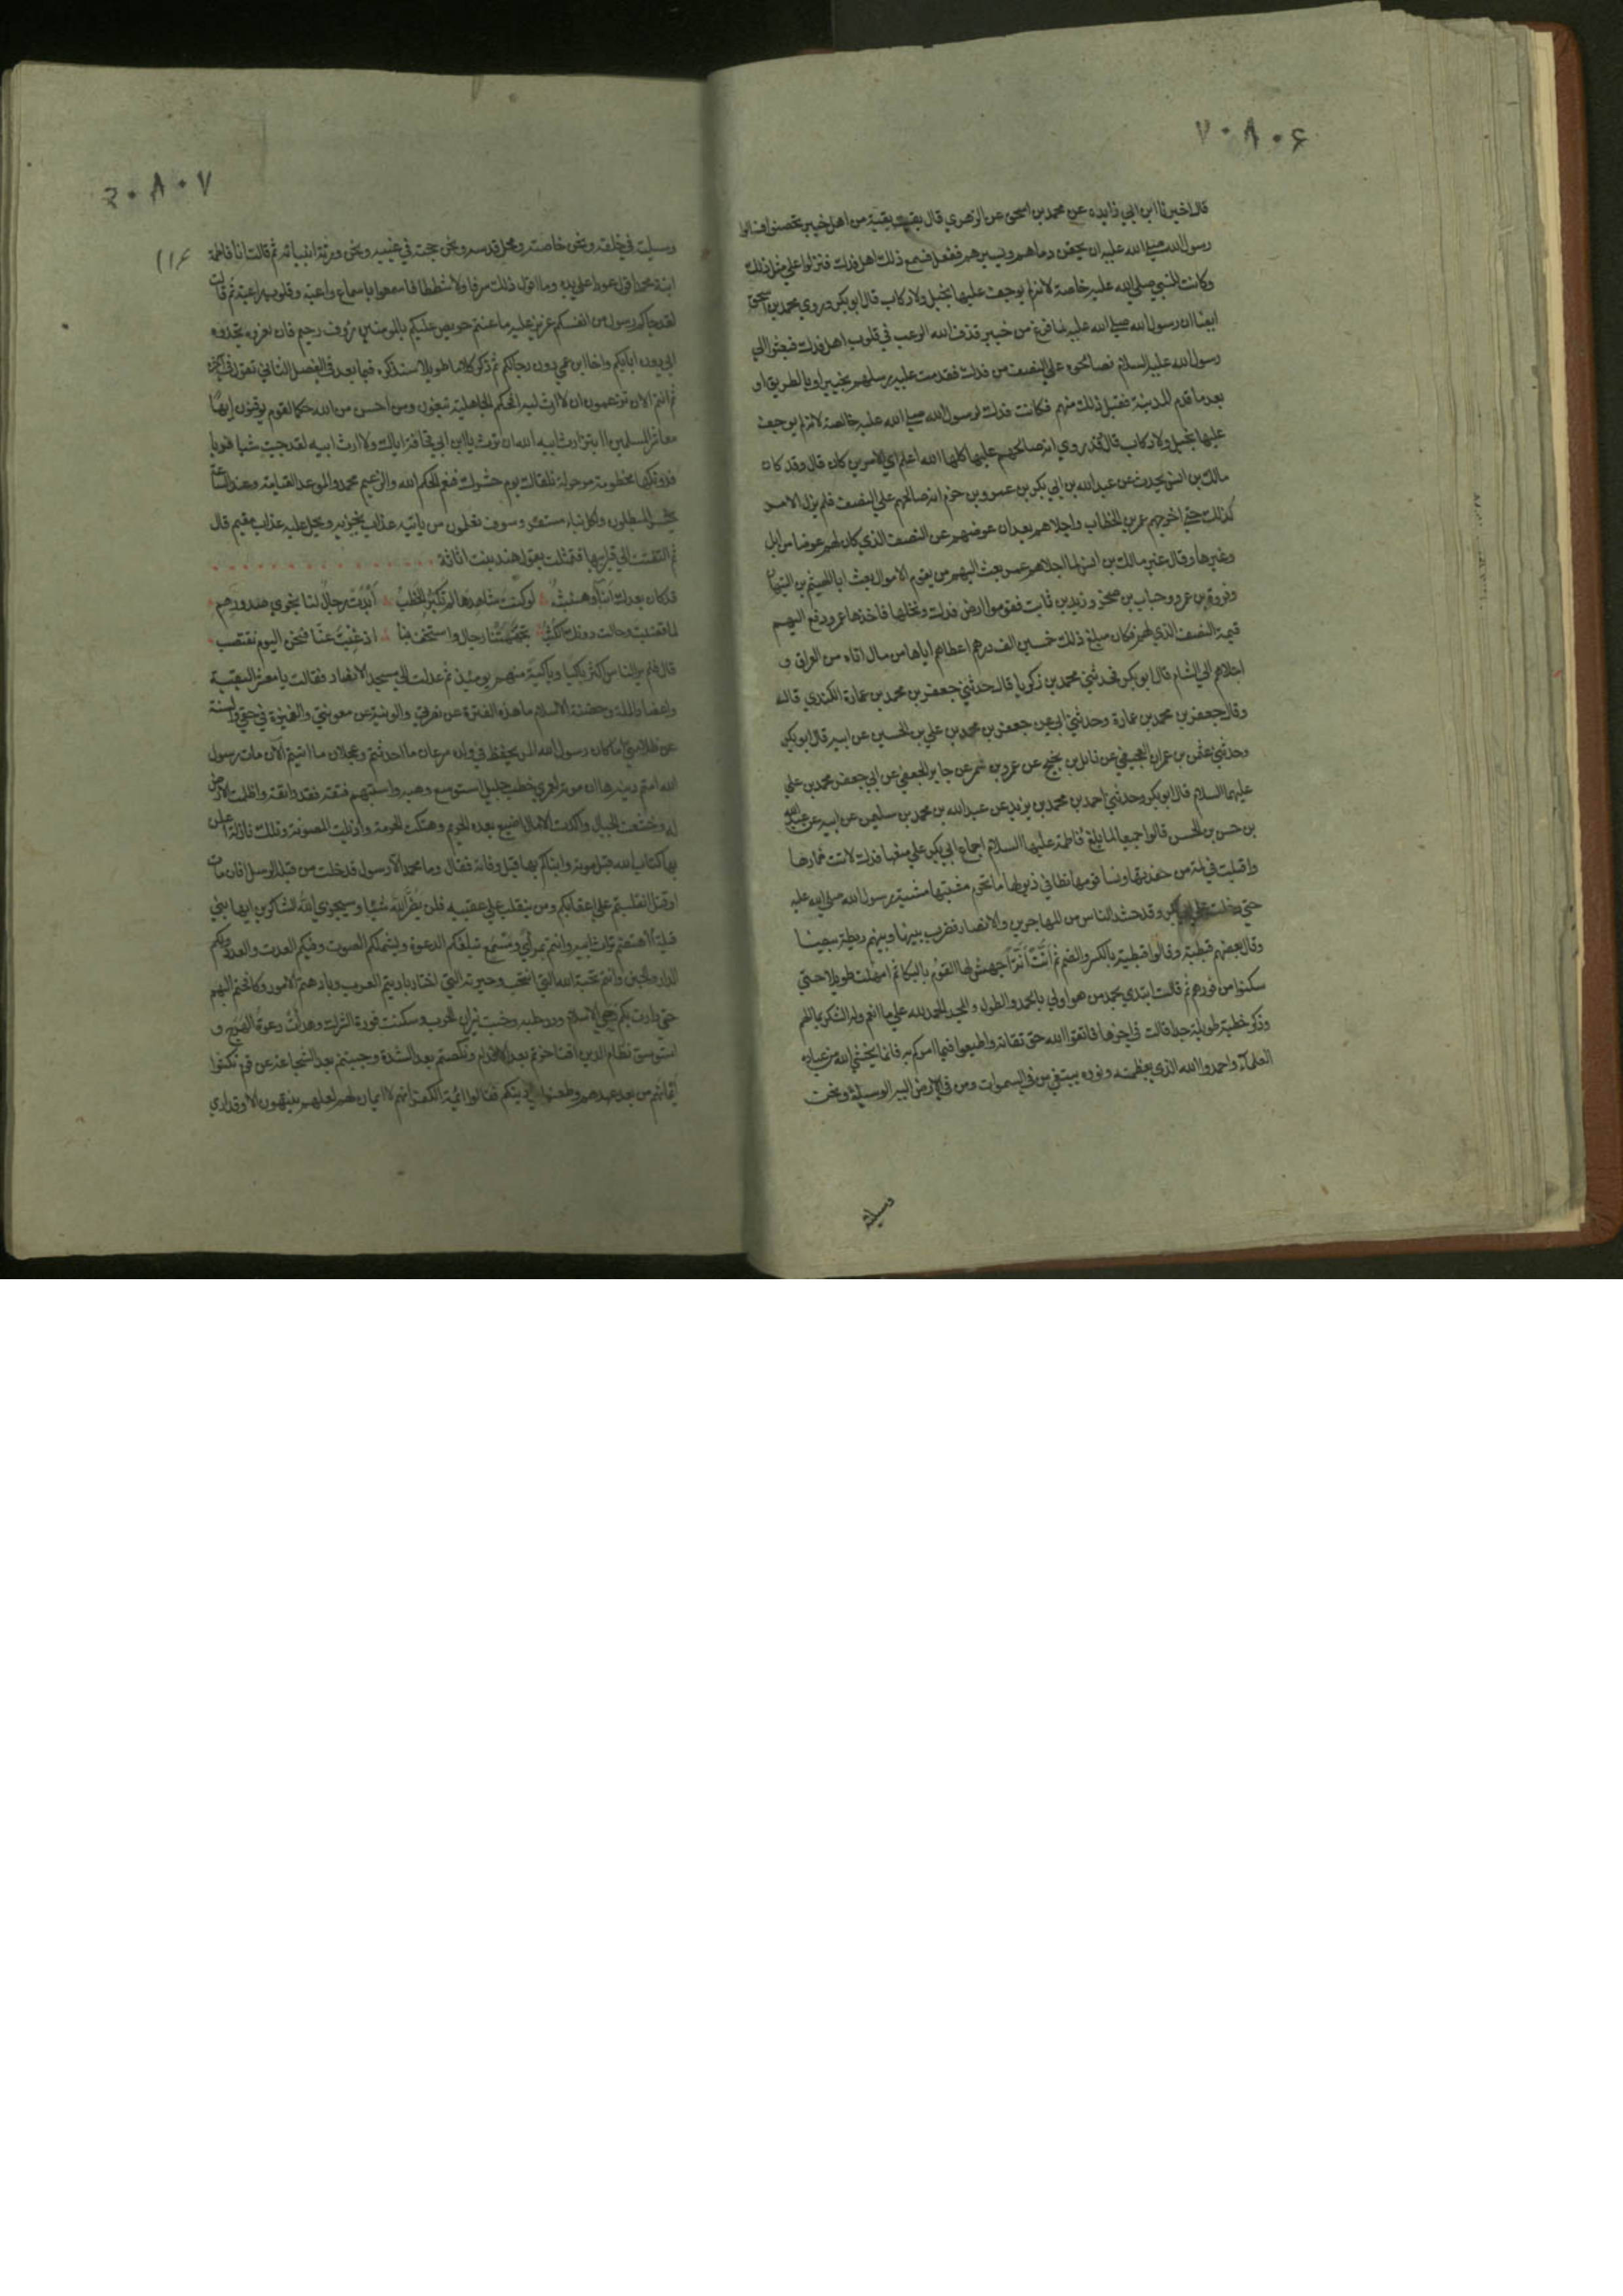 ٧٠٨٠۶
قال اخبرنا ابن ابي زايده عن محمد بن اسحق عن الزهري قال بقيت بقية من اهل خيبر تحصنوا فسالوا
رسول الله صلي الله عليه ان يحقن دماهم ويسيرهم ففعل فسمع ذلك اهل فدك فنزلوا علي مثل ذلك
وكانت للنبي صلي الله عليه خاصة لانه لم يوجف عليها بخيل ولا ركاب قال ابو بكر وروي محمد بن اسحق
ايضا ان رسول الله صلي الله عليه لما فرغ من خيبر قذف الله الرعب في قلوب اهل فدك فبعثوا الي
رسول الله عليه السلام فصالحوه علي النصف من فدك فقدمت عليه رسلهم بخيبر او بالطريق او
بعد ما قدم المدينة فقبل ذلك منهم فكانت فدك لرسول الله صلي الله عليه خالصة لانه لم يوجف
عليها بخيل ولا ركاب قال وقد روي انه صالحهم عليها كلها الله اعلم اي الامرين كان قال وقد كان
مالك بن انس يحدث عن عبد الله بن ابي بكر بن عمرو بن حزم انه صالحهم علي النصف فلم يزل الامر
كذلك حتي اخرجهم عمر بن الخطاب واجلاهم بعد ان عوضهم عن النصف الذي كان لهم عوضا من ابل
وغيرها وقال غير مالك بن انس لما اجلاهم عمر بعث اليهم من يقوم الاموال بعث ابا الهيثم بن التيهان
وفروة بن عمرو وحباب بن صخر وزيد بن ثابت فقوموا ارض فدك ونخلها فاخذها عمر ودفع اليهم
قيمة النصف الذي لهم فكان مبلغ ذلك خمسين الف درهم اعطاهم اياها من مال اتاه من العراق و
اجلاهم الي الشام قال ابو بكر فحدثني محمد بن زكريا قال حدثني جعفر بن محمد بن عمارة الكندي قال
وقال جعفر بن محمد بن عمارة وحدثني ابي عن جعفر بن محمد بن علي بن الحسين عن ابيه قال ابو بكر
وحدثني عثمن بن عمران العجيفي عن نائل بن نجيح عن عمرو بن شمر عن جابر الجعفي عن ابي جعفر محمد بن علي
عليهما السلام قال ابو بكر وحدثني احمد بن محمد بن يزيد عن عبد الله بن محمد بن سليمن عن ابيه عن عبد الله
بن حسن بن الحسن قالوا جميعا لما بلغ فاطمة عليها السلام اجماع ابي بكر علي منعها فدك لاثت خمارها
واقبلت في لمة من حفدتها ونسا قومها تطا في ذيولها ما تخرم مشيتها مشية رسول الله صلي الله عليه
حتي دخلت علي ابي بكر وقد حشد الناس من المهاجرين والانصار فضرب بينها وبينهم ريطة بيضا
وقال بعضهم قبطية وقالوا قبطية بالكسر والضم ثم انَّتْ انَّةً اجهش لها القوم بالبكا ثم امهلت طويلا حتي
سكنوا من فورهم ثم قالت ابتدي بحمد من هو اولي بالحمد والطول والمجد الحمد لله علي ما انعم وله الشكر بما الهم
وذكر خطبة طويلة جدا قالت في اخرها فاتقوا الله حق تقاته واطيعوا فيما امركم به فانما يخشي الله من عباده
العلمآء واحمدوا الله الذي بعظمته ونوره يبتغي من في السموات ومن في الارض اليه الوسيلة ونحن
وسيلته
٢٠٨٠٧
١١۶
وسيلته في خلقه ونحن خاصته ومحل قدسه ونحن حجته في غيبه ونحن ورثة انبيائه ثم قالت انا فاطمة
ابنة محمد اقول عودا علي بدء وما اقول ذلك سرفا ولا شططا فاسمعوا باسماع واعية وقلوب راعية ثم قالت
لقد جاكم رسول من انفسكم عزيز عليه ما عنتم حريص عليكم بالمومنين رؤف رحيم فان تعزوه تجدوه
ابي دون ابايكم واخا ابن عمي دون رجالكم ثم ذكر كلاما طويلا سنذكره فيما بعد في الفصل الثاني تقول في اخره
ثم انتم الان تزعمون ان لا ارث ليه افحكم الجاهلية تبغون ومن احسن من الله حكما لقوم يوقنون ايها
معاشر المسلمين اابتز ارث ابيه الله ان ترث يا ابن ابي قحافة اباك ولا ارث ابيه لقد جيت شيا فريا
فدونكها مخطومة مرحولة تلقاك يوم حشرك فنعم الحكم الله والزعيم محمد والموعد القيامة وعند الساعة
يخسر المبطلون ولكل نباء مستقر وسوف تعلمون من ياتيه عذاب يخزيه ويحل عليه عذاب مقيم قال
ثم التفتت الي قبر ابيها فتمثلت بقول هند بنت اثاثة
قد كان بعدك انبآء وهينمة لو كنت شاهدها لم تكثر الخطب ابدت رجال لنا نجوي صدورهم
لما قضيت وحالت دونك الكثب تجهمتنا رجال واستخف بنا اذ غبت عنا فنحن اليوم نغتصب
قال فلم ير الناس اكثر باكيا وباكية منهم يومئذ ثم عدلت الي مسجد الانصار فقالت يا معشر البقية
واعضاد الملة وحضنة الاسلام ما هذه الفترة عن نصرتي والونية عن معونتي والغميزة في حقي والسنة
عن ظلامتي اما كان رسول الله المرء يحفظ في ولده سرعان ما احدثتم وعجلان ما اتيتم الآن مات رسول
الله امتم دينه ها ان موته لعمري خطب جليل استوسع وهيه واستبهم فتقه فقد راتقه واظلمت الارض
له وخشعت الجبال واكدت الامال اضيع بعده الحريم وهتكت الحرمة واذيلت المصونة وتلك نازلة اعلن
بها كتاب الله قبل موته وانباكم بها قبل وفاته فقال وما محمد الا رسول قد خلت من قبله الرسل افان مات
او قتل انقلبتم علي اعقابكم ومن ينقلب علي عقبيه فلن يضر الله شيئا وسيجزي الله الشاكرين ايها بني
قيلة ااهتضم تراث ابيه وانتم بمرأي ومسمع تبلغكم الدعوة ويشملكم الصوت وفيكم العدة والعدد ولكم
الدار والجنن وانتم نخبة الله التي انتخب وخيرته التي اختار باديتم العرب وبادهتم الامور وكافحتم البهم
حتي دارت بكم رحي الاسلام ودر حلبه وخبت نيران الحرب وسكنت فورة الشرك وهدأت دعوة الهرج و
استوسق نظام الدين افتاخرتم بعد الاقدام ونكصتم بعد الشدة وجبنتم بعد الشجاعة عن قوم نكثوا
ايمانهم من بعد عهدهم وطعنوا في دينكم فقاتلوا ائمة الكفر انهم لا ايمان لهم لعلهم ينتهون الا وقد اري